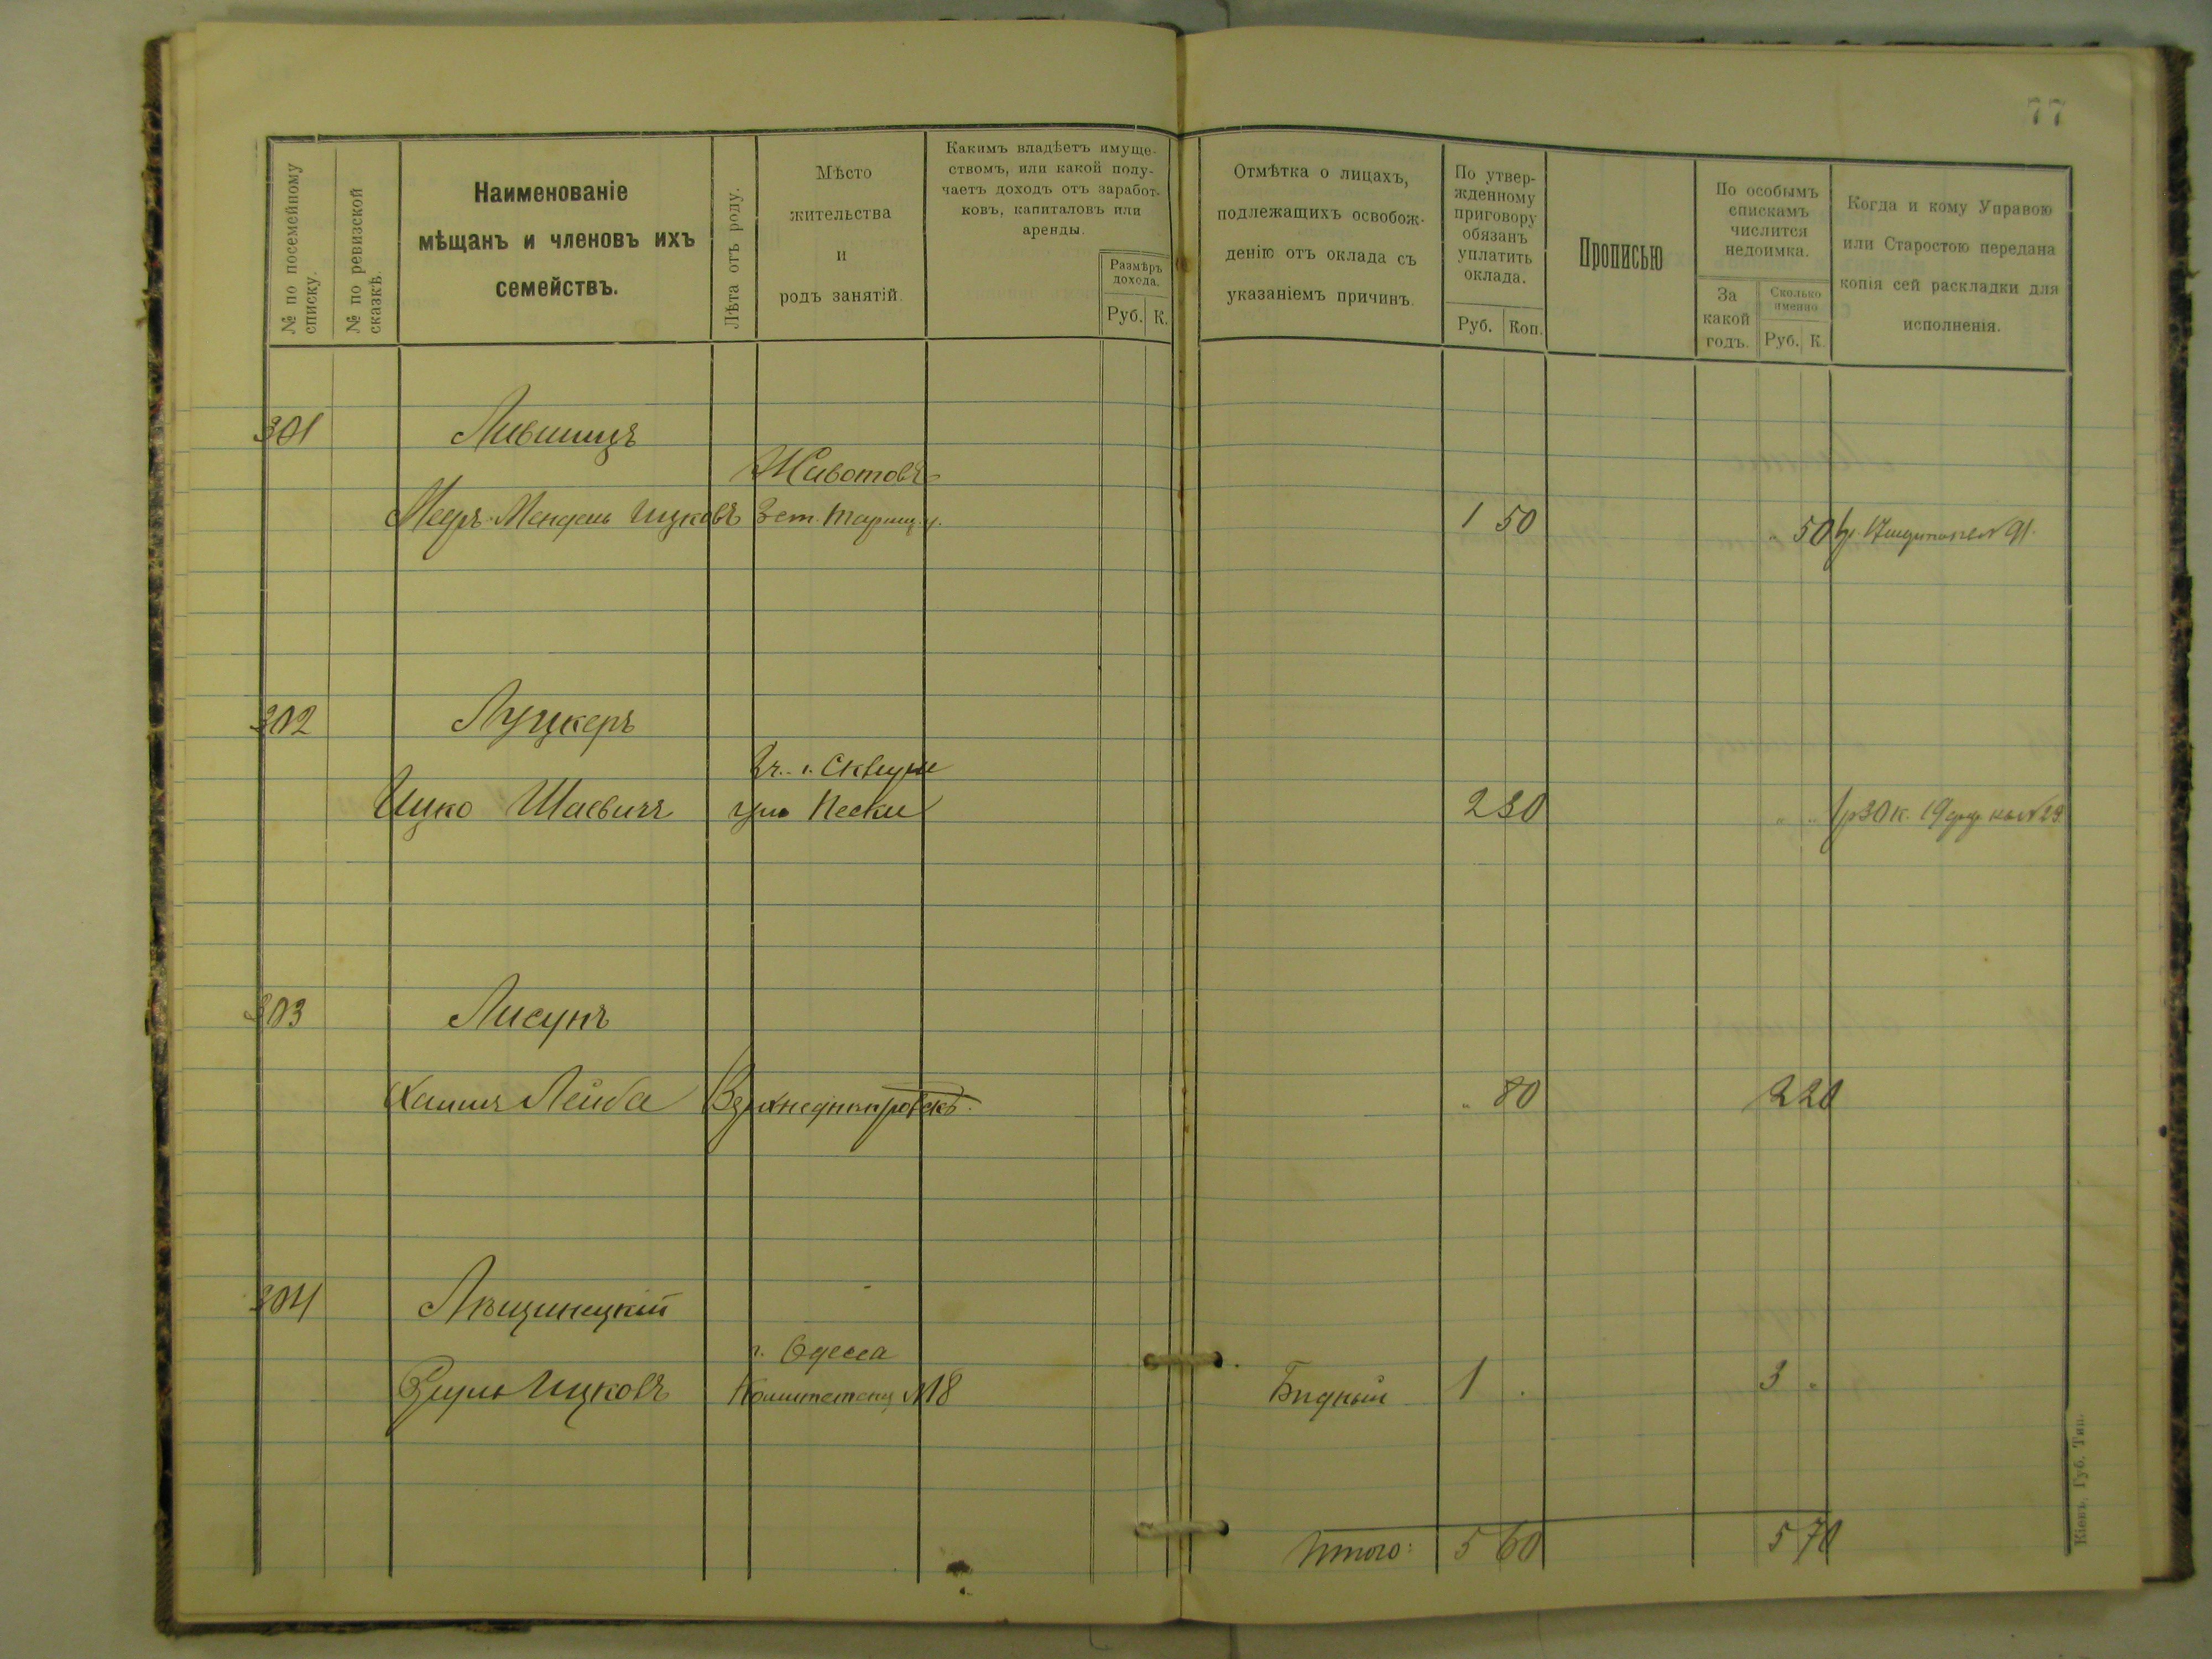 77
№ по посемейному списку.
№ по ревизской сказкѣ.
Наименованіе
мѣщанъ и членовъ ихъ
семействъ.
Лѣта отъ роду.
Мѣсто
жительства
и
родъ занятій.
Какимъ владѣетъ имуще-
ствомъ, или какой полу-
чаетъ доходъ отъ заработ-
ковъ, капиталовъ или
аренды.
Размѣръ
дохода.
Руб. К.
Отмѣтка о лицахъ,
подлежащихъ освобож-
денію отъ оклада съ
указаніемъ причинъ.
По утвер-
жденному
приговору
обязанъ
уплатить
оклада.
Руб. Коп.
Прописью
По особымъ
спискамъ
числится
недоимка.
За
какой
годъ.
Сколько
именно
Руб. К.
Когда и кому Управою
или Старостою передана
копія сей раскладки для
исполненія.
301 Лившицъ
Животовъ
Мееръ-Мендель Ицковъ 1 50 " 50 91.
302 Луцкеръ
г. Сквире
Ицко Шаевичъ Пески 2 30 " " 1р30к. 19
303 Лисунъ
Хаимъ Лейба Верхнеднипровскъ. " 80 2 20
304 Лѣщинецкій
г. Одесса
Ицковъ №18 Бидный 1 . 3 "
Итого: 5 60 5 70
Кіевъ, Губ. Тип.